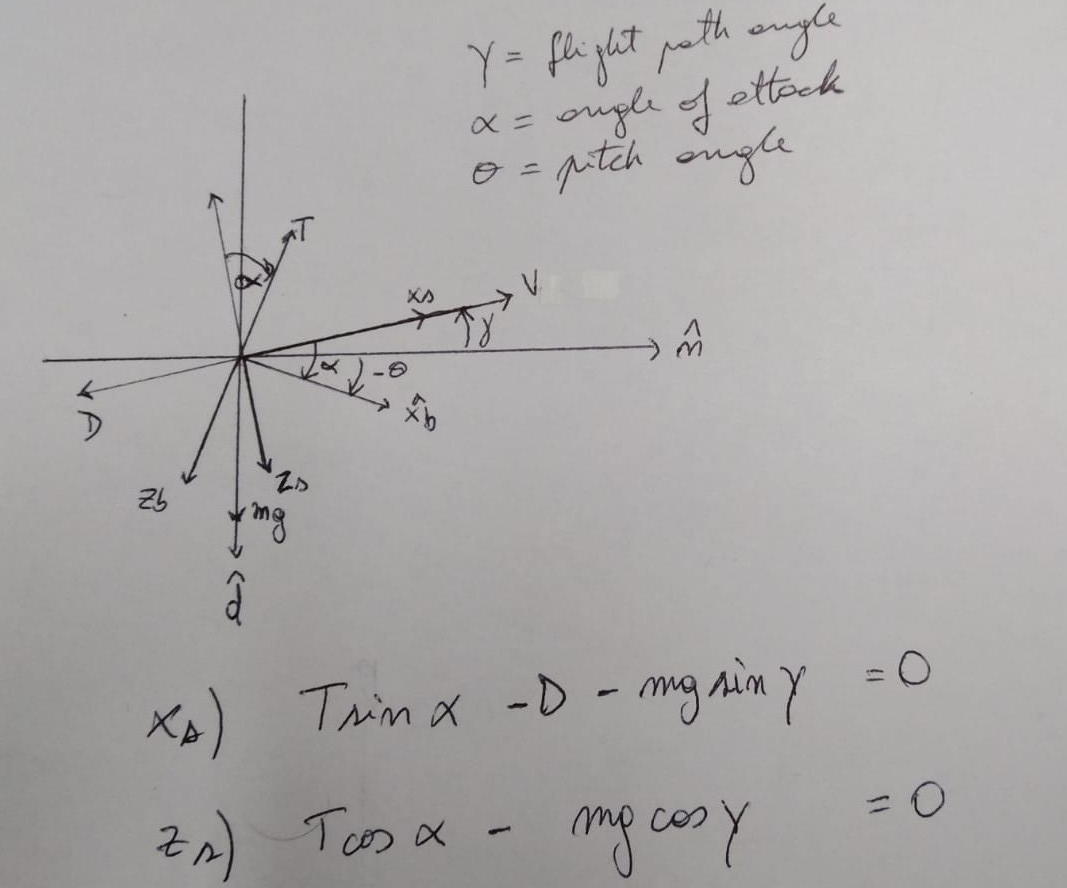 γ = flight path angle
α = angle of attack
θ = pitch angle
T
α
xs
V
γ
n̂
α
-θ
x̂b
D
zb
zs
mg
d̂
xs) T sin α - D - mg sin γ = 0
zs) T cos α - mg cos γ = 0